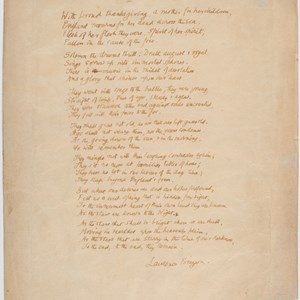 With proud thanksgiving, a mother for her children,
England mourns for her dead across the sea.
Flesh of her flesh they were, spirit of her spirit,
Fallen in the cause of the free.
Solemn the drums thrill: Death august & royal
Sings sorrow up into immortal spheres.
There is music in the midst of desolation
And a glory that shines upon our tears.
They went with songs to the battle, they were young,
Straight of limb, true of eye, steady & aglow,
They were staunch to the end against odds uncounted,
They fell with their faces to the foe.
They shall grow not old, as we that are left grow old:
Age shall not weary them, nor the years condemn.
At the going down of the sun, & in the morning,
We will remember them.
They mingle not with their laughing comrades again;
They sit no more at familiar tables of home;
They have no lot in our labour of the day time;
They sleep beyond England's foam.
But where our desires are and our hopes profound,
Felt as a well-spring that is hidden from sight,
To the innermost heart of their own land they are known
As the stars are known to the Night.
As the stars that shall be bright when we are dust,
Moving in marches upon the heavenly plain,
As the stars that are starry in the time of our darkness,
To the end, to the end, they remain.
Laurence Binyon